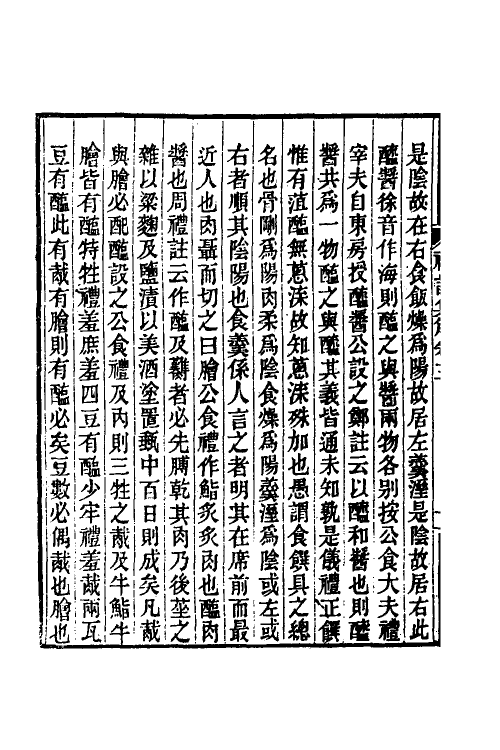 是陰故在右食飯燥爲陽故居左羹溼是陰故居右此
醯醬徐音作海則醯之與醬兩物各别按公食大夫禮
宰夫自東房授醯醬公設之鄭註云以醯和醬也則醯
醬共爲一物醯之與醯其義皆通未知孰是儀禮正饌
惟有菹醢無蔥渫故知蔥渫殊加也愚謂食饌具之總
名也骨剛爲陽肉柔爲陰食燥爲陽羹溼爲陰或左或
右者順其陰陽也食羹係人言之者明其在席前而最
近人也肉聶而切之曰膾公食禮作鮨炙炙肉也醢肉
醬也周禮註云作醢及臡者必先膊乾其肉乃後莝之
雜以粱麴及鹽漬以美酒塗置甀中百日則成矣凡胾
與膾必配醢設之公食禮及內則三牲之胾及牛鮨牛
膾皆有醢特牲禮羞庶羞四豆有醢少牢禮羞胾兩瓦
豆有醢此有胾有膾則有醢必矣豆數必偶胾也膾也